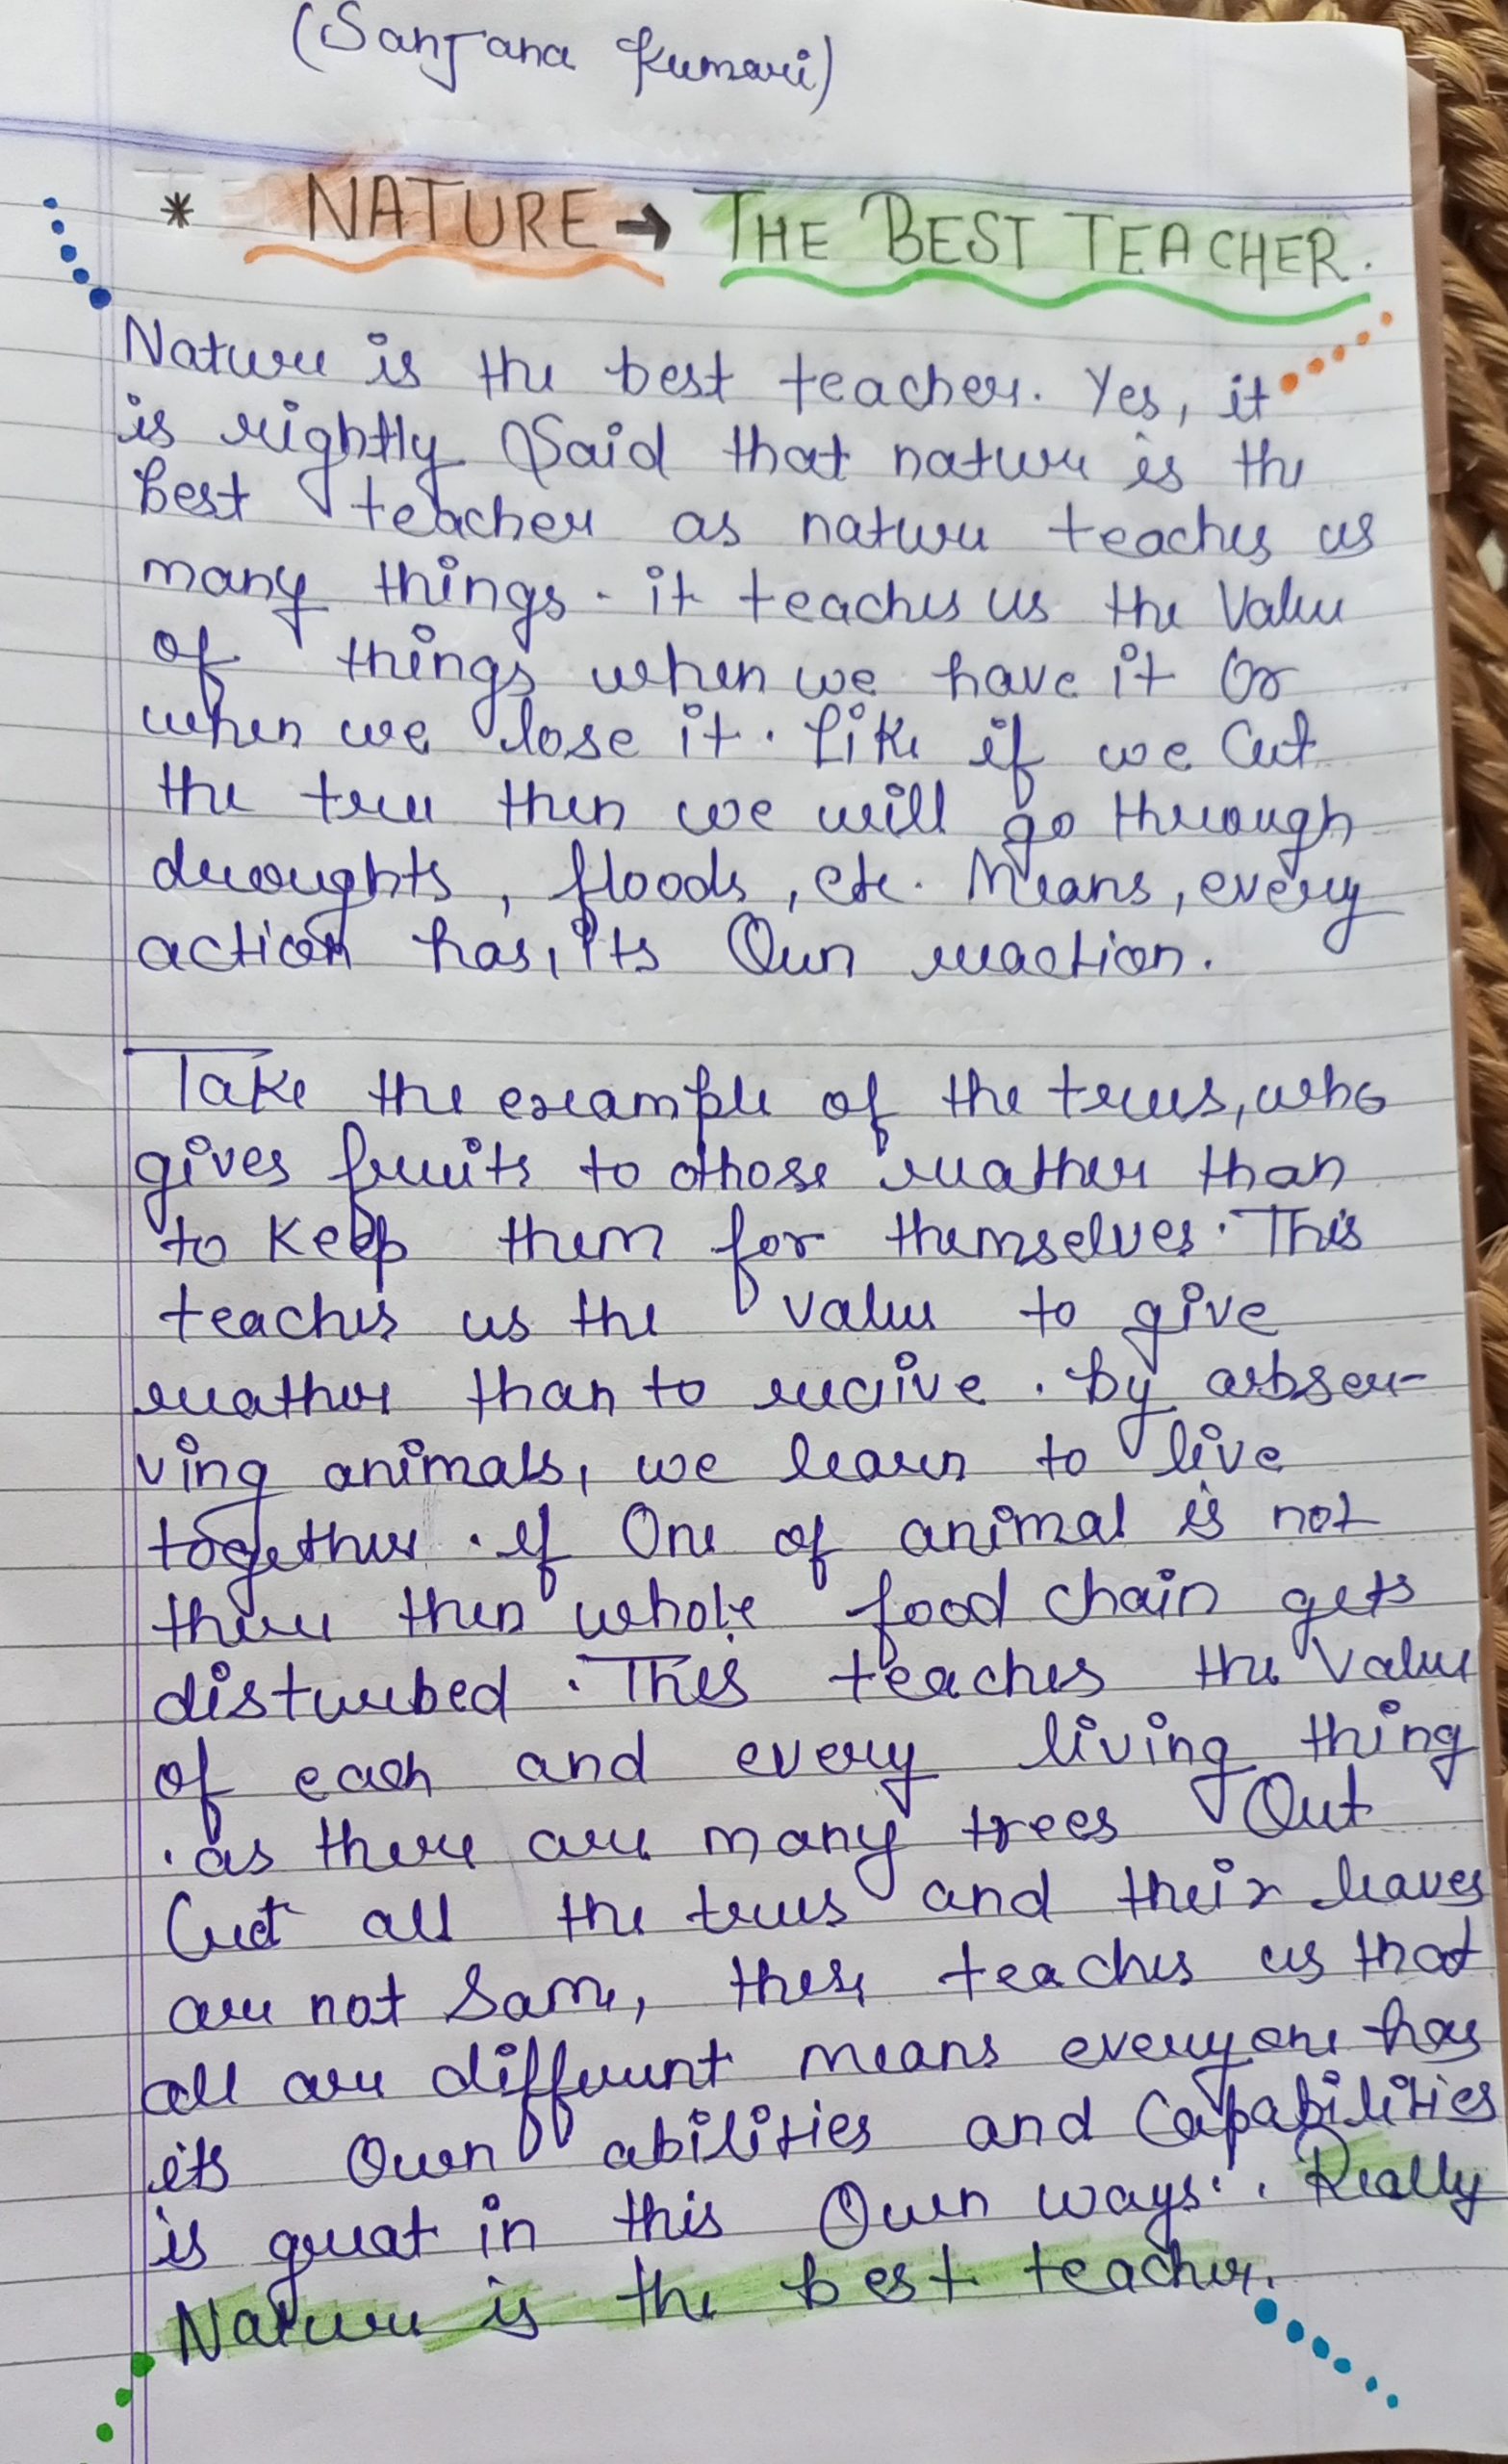 (Sanjana Kumari)
* NATURE → THE BEST TEACHER.
Nature is the best teacher. Yes, it
is rightly Said that nature is the
best teacher as nature teaches us
many things. it teaches us the Value
of things when we have it Or
when we lose it. Like if we Cut
the tree then we will go through
droughts, floods, etc. Means, every
action has, its Own reaction.
Take the example of the trees, who
gives fruits to those rather than
to Keep them for themselves. This
teaches us the value to give
rather than to recive. by obser-
ving animals, we learn to live
together. if One of animal is not
there then whole food chain gets
disturbed. This teaches the Value
of each and every living thing
. as there are many trees Out
Cut all the trees and their leaves
are not Same, these teaches us that
all are different means everyone has
its Own abilities and Capabilities
is great in this Own ways. . Really
Nature is the best teacher.